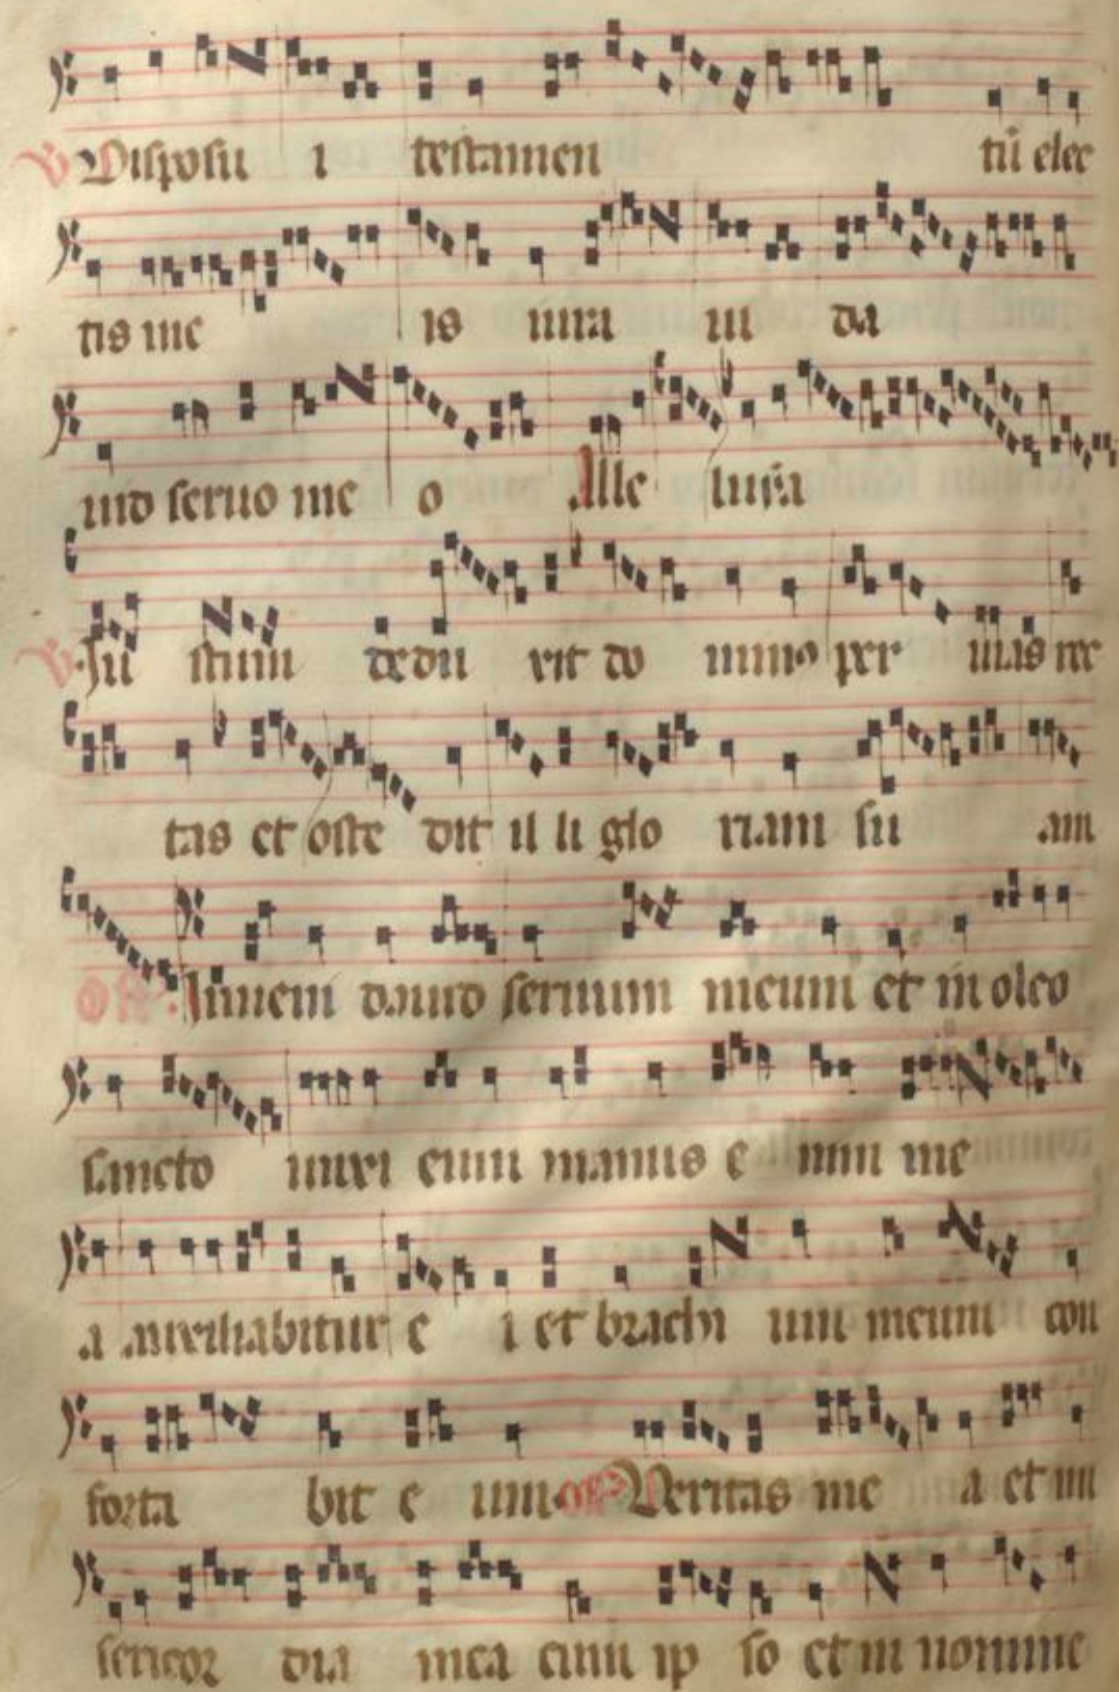 V Disposu i testamen tū elec
tis me is iura ui da
uid seruo me o Alle luia
V. Iu stum dedu xit do minus per uias rec
tas et oste dit il li glo riam su am
Off. Inueni dauid seruum meum et in oleo
sancto unxi eum manus e nim me
a auxiliabitur e i et brachi um meum con
forta bit e um off. Veritas me a et mi
sericor dia mea cum ip so et in nomine